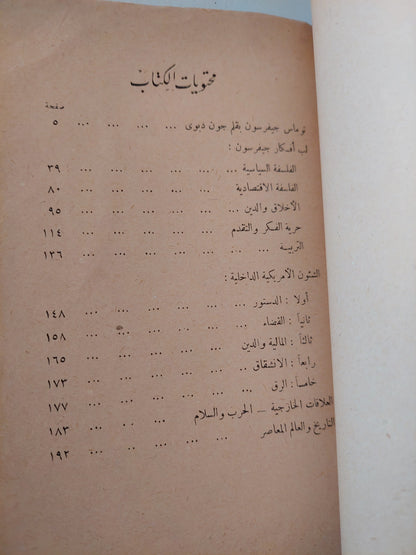 محتويات الكتاب
صفحة
توماس جيفرسون بقلم جون ديوى ... ... ... ... ٥
لب أفكار جيفرسون :
الفلسفة السياسية ... ... ... ... ... ... ٣٩
الفلسفة الاقتصادية ... ... ... ... ... ٨٠
الأخلاق والدين ... ... ... ... ... ... ٩٥
حرية الفكر والتقدم ... ... ... ... ... ١١٤
التربية ... ... ... ... ... ... ... ١٣٦
الشئون الأمريكية الداخلية :
أولا : الدستور ... ... ... ... ... ... ١٤٨
ثانيا : القضاء ... ... ... ... ... ... ١٥٨
ثالثا : المالية والدين ... ... ... ... ... ١٦٥
رابعا : الانشقاق .. ... ... ... ... ... ١٧٣
خامسا : الرق ... ... ... ... ... ... ١٧٧
العلاقات الخارجية – الحرب والسلام ... ... ... ١٨٣
التاريخ والعالم المعاصر ... ... ... ... ... ١٩٢